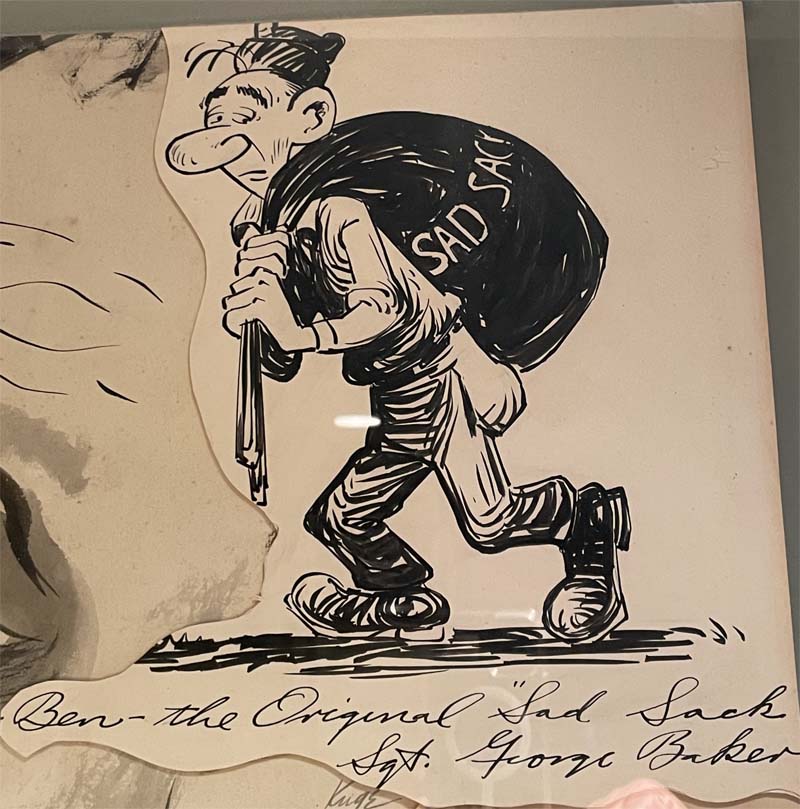 SAD SACK
Ben - the Original "Sad Sack
Sgt. George Baker